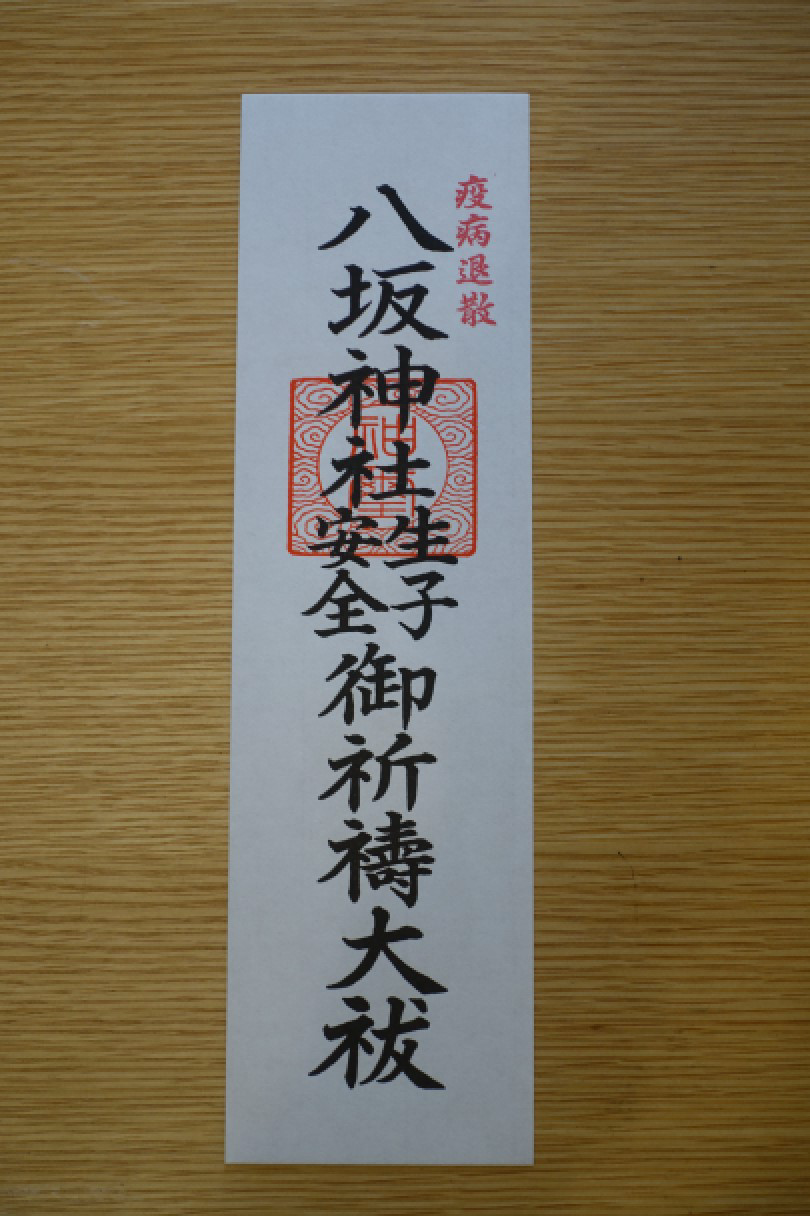 疫病退散
八坂神社生子安全御祈禱大祓
神璽